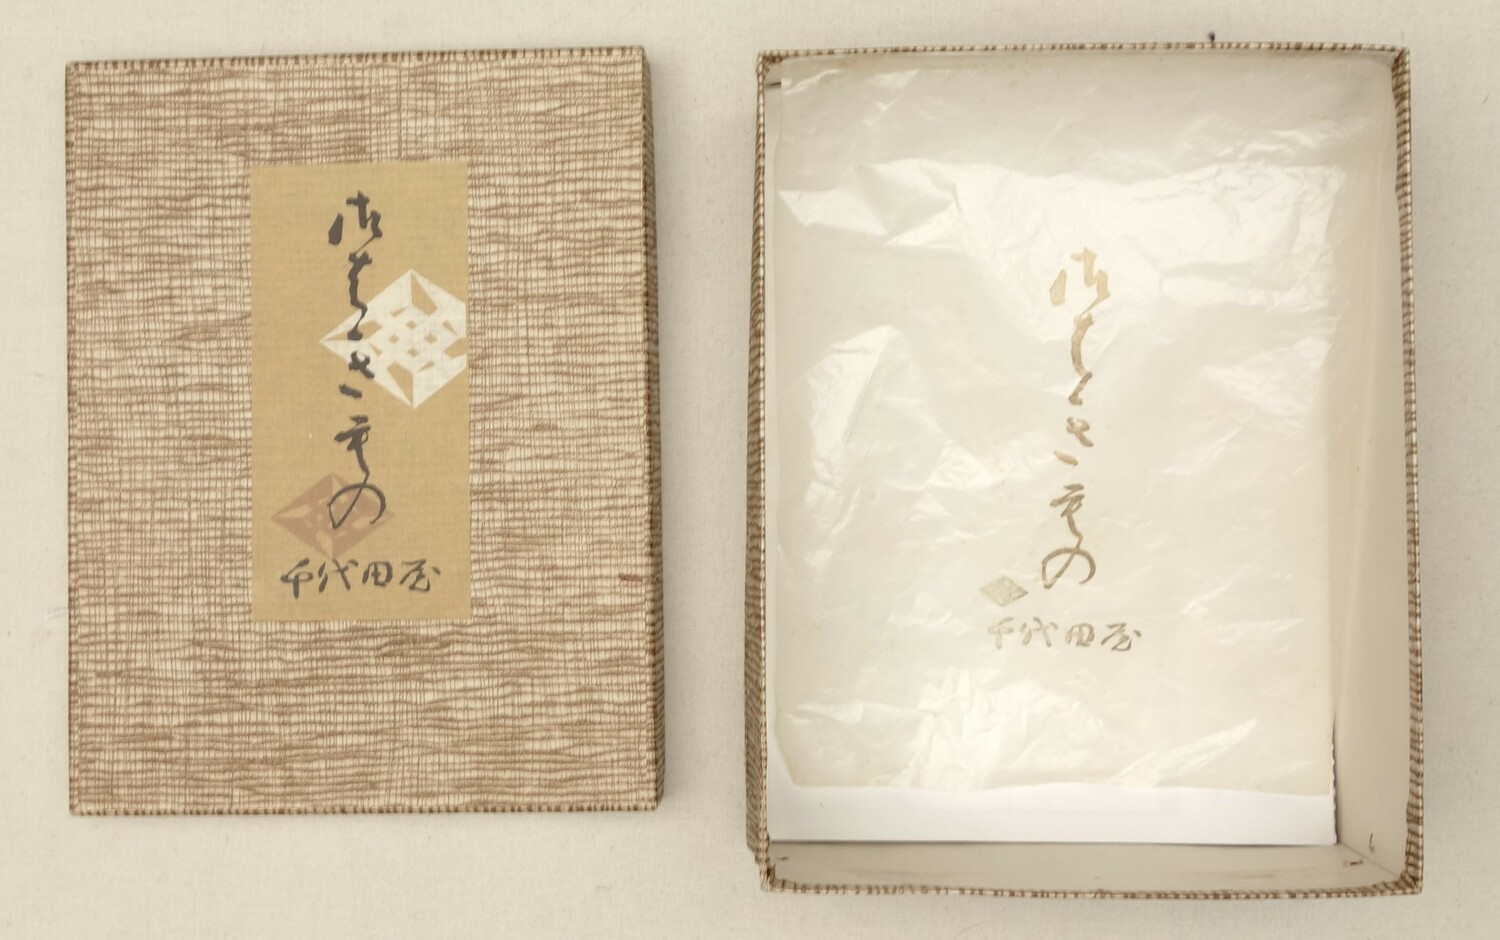 御はきもの
千代田屋
御はきもの
千代田屋